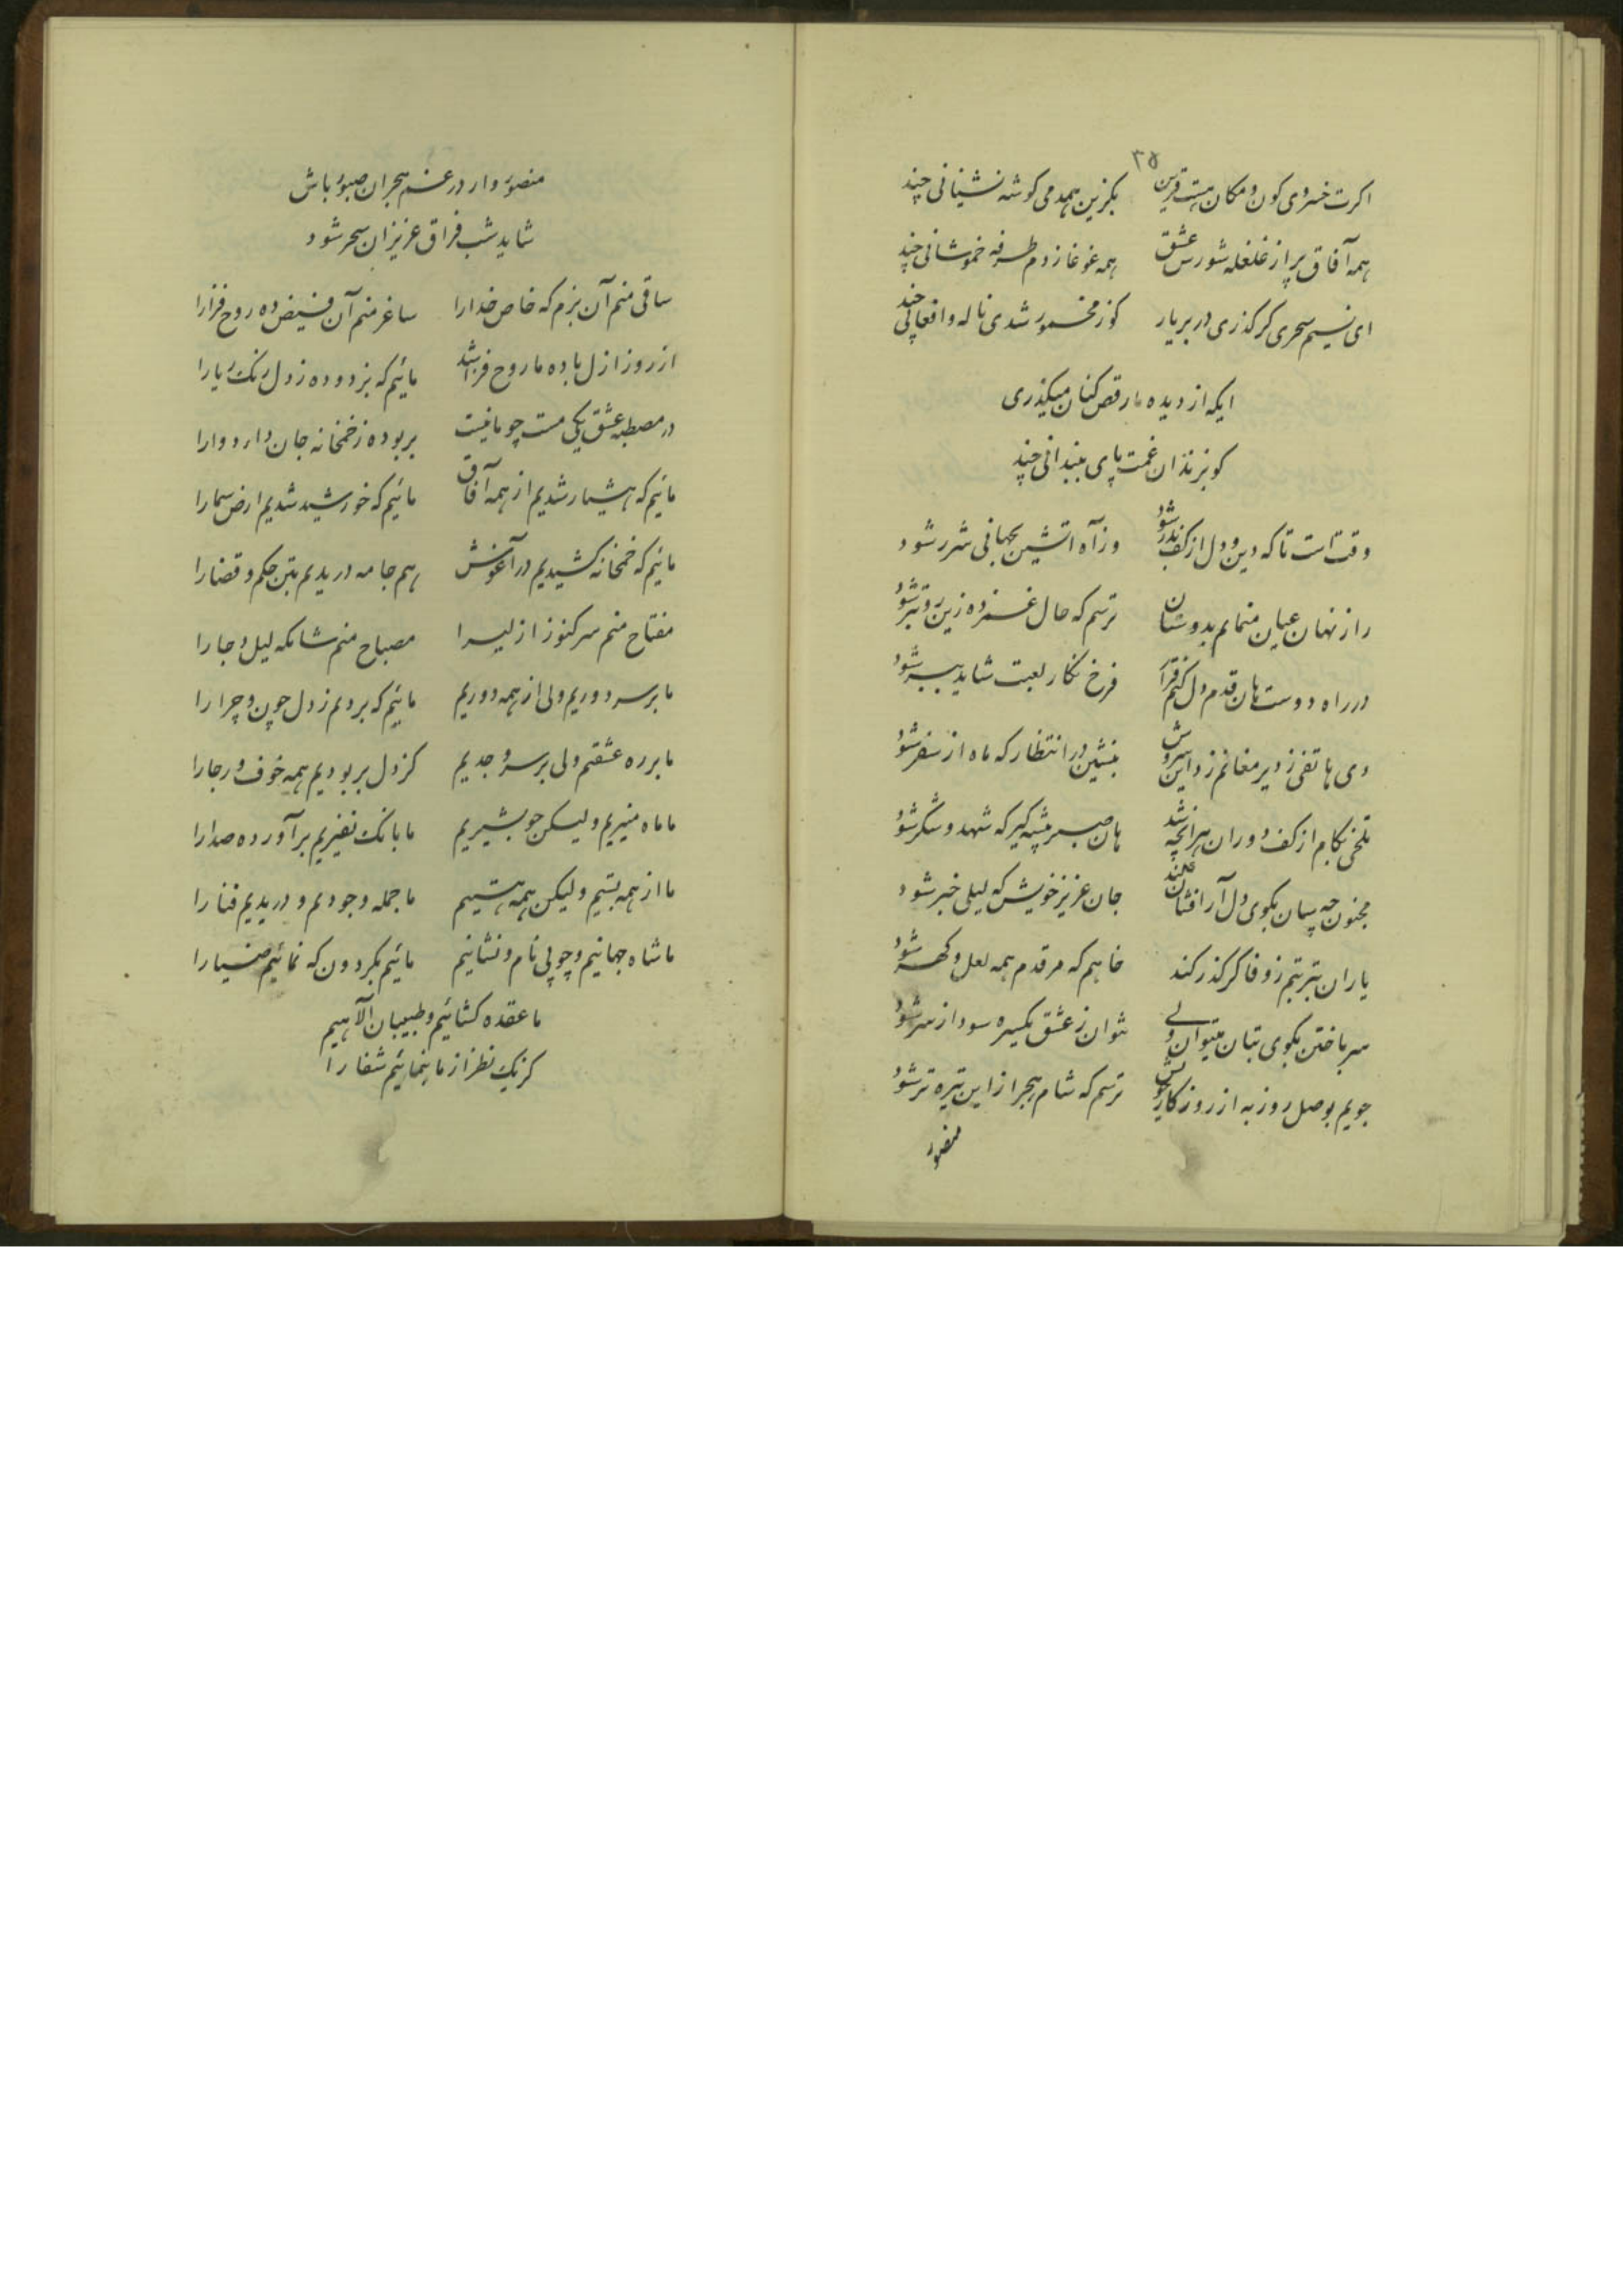 ۳۵
اکرت خسروی کون و مکان هست قرین بکزین همدمی کوشه نشینانی چند
همه آفاق پر از غلغله شورش عشق همه غوغا زدم طرفه خموشانی چند
ای نسیم سحری کر کذری در بر یار کوز مخمور شدی ناله و افغانی چند
ایکه از دیده ما رقص کنان میکذری
کو بزندان غمت پای ببندانی چند
وقت است تا که دین و دل از کف بدر شود وز آه اتشین بجهانی شرر شود
راز نهان عیان منمایم بدوستان ترسم که حال غمزده زین رو بتر شود
در راه دوست هان قدم دل کنم فرخ نکار لعبت شاید ببر شود
دی هاتفی ز دیر مغانم زد این سروش بنشین در انتظار که ماه از سفر شود
تلخی بکام از کف دوران هر انچه شد هان صبر پیشه کیر که شهد و شکر شود
مجنون چه سان بکوی دل آرا فشان کند جان عزیز خویش که لیلی خبر شود
یاران بتربتم ز وفا کر کذر کند خاهم که مرقدم همه لعل و کهر شود
سر باختن بکوی بتان میتوان ولی نتوان ز عشق یکسره سودا ز سر شود
جویم بوصل روز به از روزکار خویش ترسم که شام هجر از این تیره تر شود
منصور
منصور وار در غم هجران صبور باش
شاید شب فراق عزیزان سحر شود
ساقی منم آن بزم که خاص خدارا ساغر منم آن فیض ده روح فزارا
از روز ازل باده ما روح فزا شد مائیم که بزدوده ز دل زنک ریارا
در مصطبه عشق یکی مست چو ما نیست بربوده ز خمخانه جان دارد وارا
مائیم که هشیار شدیم از همه آفاق مائیم که خورشید شدیم ارض سمارا
مائیم که خمخانه کشیدیم در آغوش هم جامه دریدیم بتن حکم و قضارا
مفتاح منم سر کنوز ازلی را مصباح منم شانکه لیل دجارا
ما بر سر دوریم ولی از همه دوریم مائیم که بردیم ز دل چون و چرا را
ما بر ره عشقیم ولی بر سر وجدیم کز دل بربودیم همه خوف و رجارا
ما ماه منیریم ولیکن چو بشیریم ما بانک نفیریم برآورده صدارا
ما از همه بستیم ولیکن همه هستیم ما جمله وجودیم و دریدیم فنارا
ما شاه جهانیم و چو بی نام و نشانیم مائیم بکردون که نمائیم ضیارا
ما عقده کشائیم و طبیبان آلاهیم
کز یک نظر از ما بنمائیم شفارا